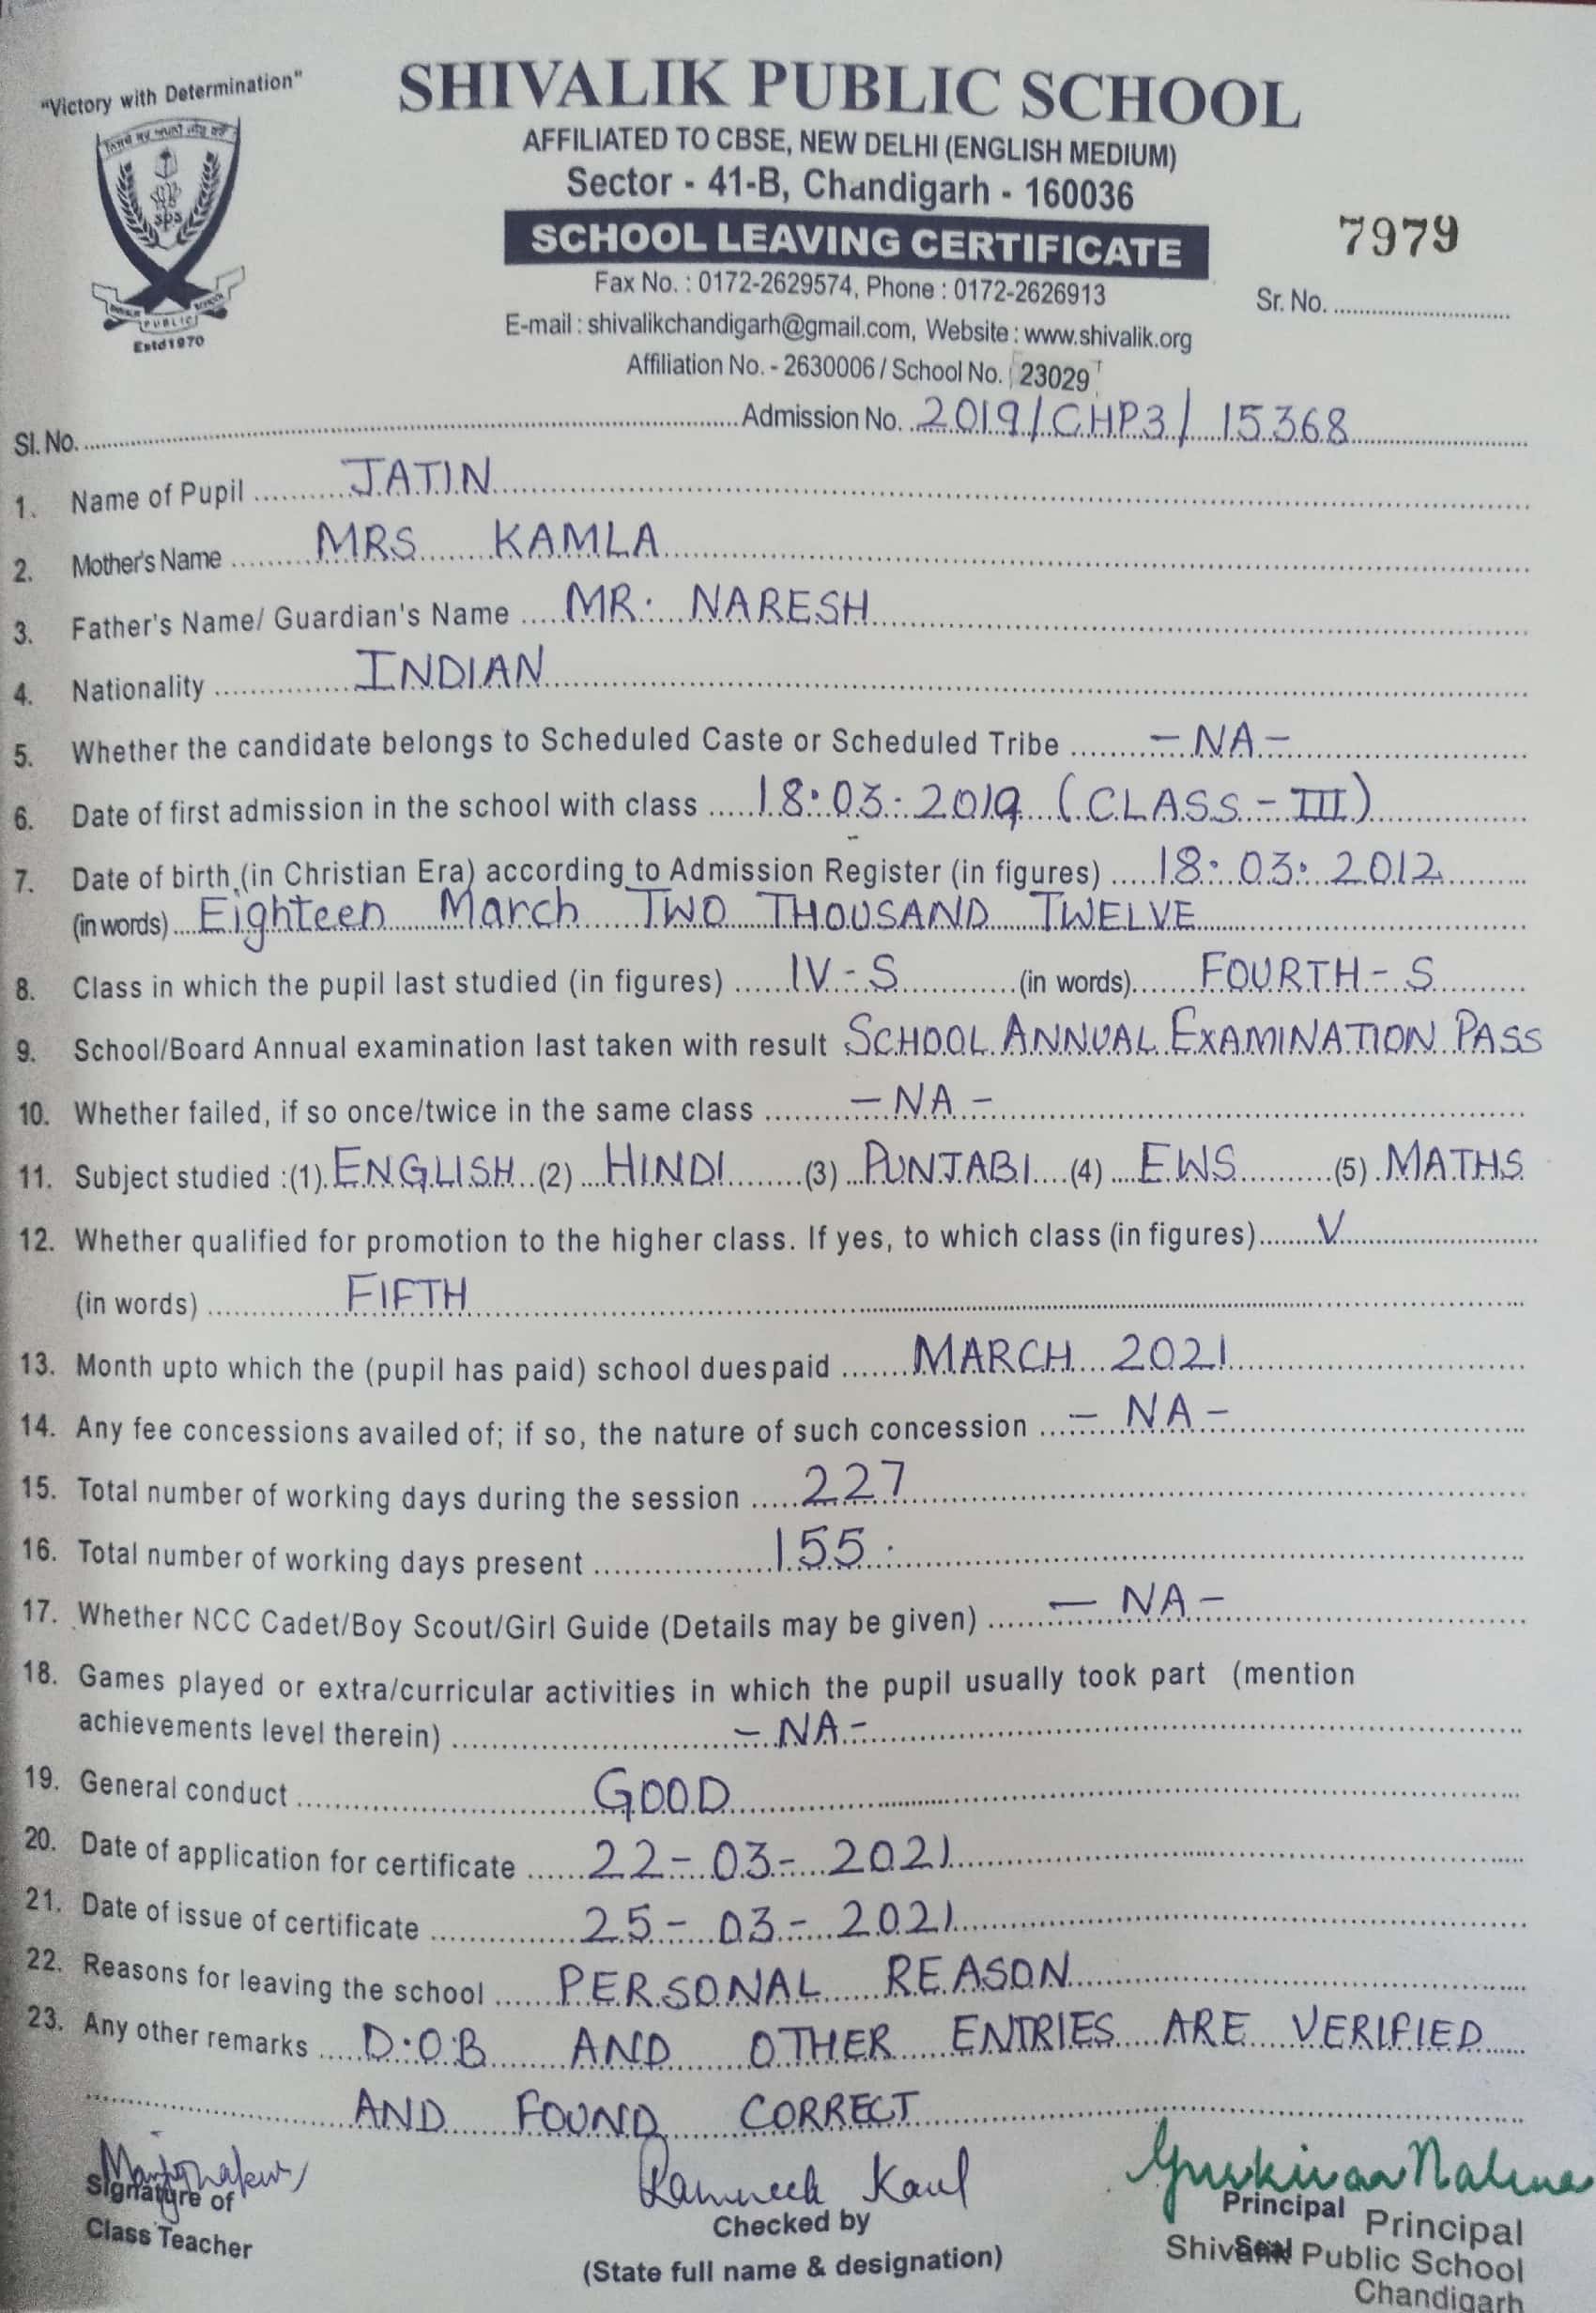 "Victory with Determination"
SHIVALIK PUBLIC SCHOOL
AFFILIATED TO CBSE, NEW DELHI (ENGLISH MEDIUM)
Sector - 41-B, Chandigarh - 160036
SCHOOL LEAVING CERTIFICATE
7979
Fax No. : 0172-2629574, Phone : 0172-2626913
Sr. No. ....................
E-mail : shivalikchandigarh@gmail.com, Website : www.shivalik.org
Affiliation No. - 2630006 / School No. 23029
SPS
PUBLIC
SCHOOL
Estd 1970
Sl. No. .................... Admission No. 2019/CHP3/15368
1. Name of Pupil JATIN
2. Mother's Name MRS KAMLA
3. Father's Name/ Guardian's Name MR. NARESH
4. Nationality INDIAN
5. Whether the candidate belongs to Scheduled Caste or Scheduled Tribe - NA -
6. Date of first admission in the school with class 18.03.2019 (CLASS - III)
7. Date of birth (in Christian Era) according to Admission Register (in figures) 18.03.2012
(in words) Eighteen March TWO THOUSAND TWELVE
8. Class in which the pupil last studied (in figures) IV - S (in words) FOURTH - S
9. School/Board Annual examination last taken with result SCHOOL ANNUAL EXAMINATION PASS
10. Whether failed, if so once/twice in the same class - NA -
11. Subject studied :(1) ENGLISH (2) HINDI (3) PUNJABI (4) EWS (5) MATHS
12. Whether qualified for promotion to the higher class. If yes, to which class (in figures) V
(in words) FIFTH
13. Month upto which the (pupil has paid) school duespaid MARCH 2021
14. Any fee concessions availed of; if so, the nature of such concession - NA -
15. Total number of working days during the session 227
16. Total number of working days present 155
17. Whether NCC Cadet/Boy Scout/Girl Guide (Details may be given) - NA -
18. Games played or extra/curricular activities in which the pupil usually took part (mention
achievements level therein) - NA -
19. General conduct GOOD
20. Date of application for certificate 22-03-2021
21. Date of issue of certificate 25-03-2021
22. Reasons for leaving the school PERSONAL REASON
23. Any other remarks D.O.B AND OTHER ENTRIES ARE VERIFIED
AND FOUND CORRECT
Signature of
Class Teacher
Kaul
Checked by
(State full name & designation)
Principal
Seal
Principal
Shivalik Public School
Chandigarh